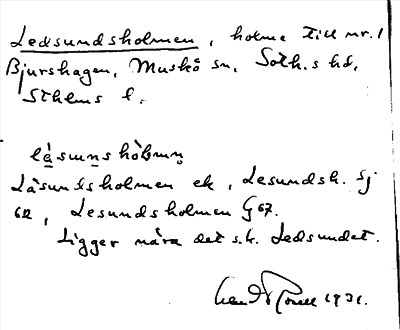 Ledsundsholmen, holme till nr. 1
Bjurshagen, Muskö sn, Soth.s hd,
Sthlms l.
låsunnshòlmṇ
Låsundsholmen ek, Lesundsh. Sj
62, Lesundsholmen G 67.
Ligger nära det s.k. Ledsundet.
1931.